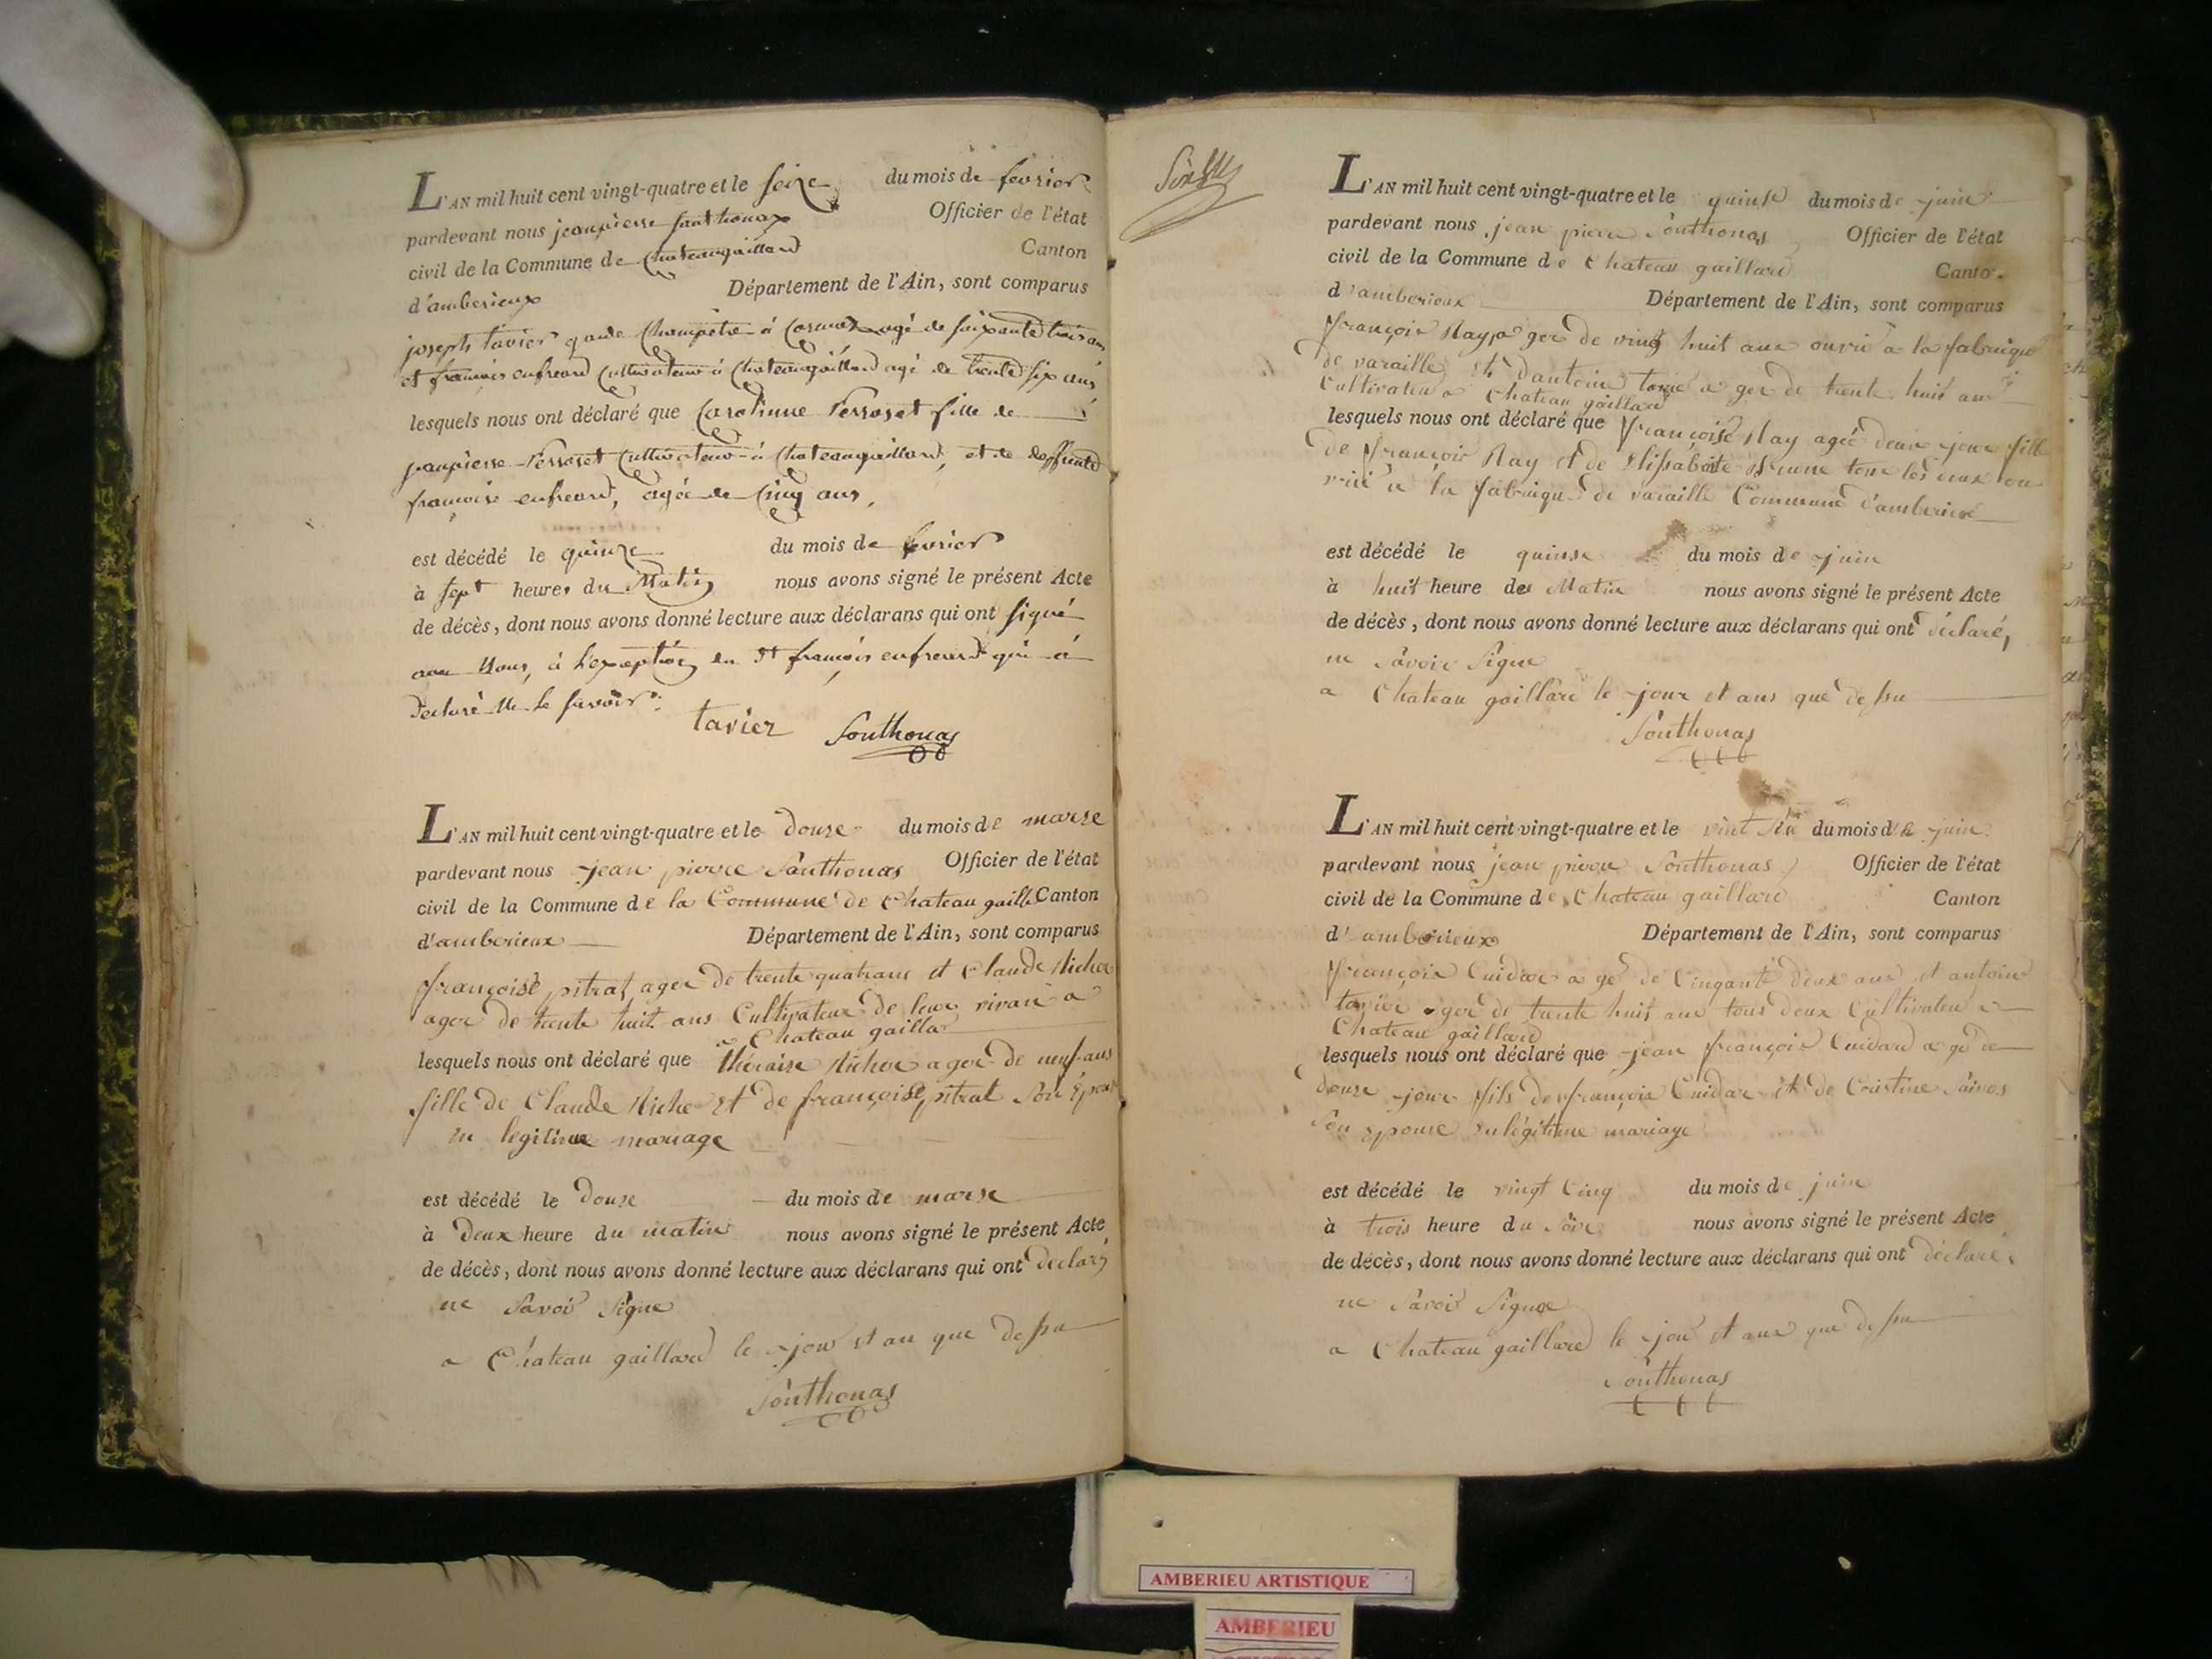 L'AN mil huit cent vingt-quatre et le seize du mois de fevrier
pardevant nous jeanpierre Santhonax Officier de l'état
civil de la Commune de Chateaugaillard Canton
d'amberieux Département de l'Ain, sont comparus
joseph tavier garde Champetre à Cormoz agé de soixante trois ans
et françois enfreard Cultivateur à Chateaugaillard agé de trente six ans
lesquels nous ont déclaré que Carolinne Perroset fille de
jeanpierre Perroset Cultivateur à Chateaugaillard, et de deffunte
françoise enfreard, agée de Cinq ans,
est décédé le quinze du mois de fevrier
à sept heures du Matin nous avons signé le présent Acte
de décès, dont nous avons donné lecture aux déclarans qui ont signé
avec Nous, à l'exception du dt françois enfreard qui à
declaré Ne le savoir.
tavier Southonas
L'AN mil huit cent vingt-quatre et le douse du mois de marse
pardevant nous jean pierre Southonas Officier de l'état
civil de la Commune de la Commune de Chateau gaille Canton
d'amberieux Département de l'Ain, sont comparus
françoise pitrat ager de trente quatrans et Claude Micher
ager de trente huit ans Cultivateur de leur vivan a
a Chateau gaillar
lesquels nous ont déclaré que théraise Micher ager de neuf ans
fille de Claude Miche et de françoise pitrat Son Epous
en legitime mariage
est décédé le douse du mois de marse
à deux heure du matin nous avons signé le présent Acte
de décès, dont nous avons donné lecture aux déclarans qui ont declaré
ne Savoir Signe
a Chateau gaillard le jour et an que dessu
Southonas
L'AN mil huit cent vingt-quatre et le quinse du mois de juin
pardevant nous jean pierre Southonas Officier de l'état
civil de la Commune de Chateau gaillard Canton
d'amberieux Département de l'Ain, sont comparus
françois Ray, a ger de ving huit ans ouvrié a la fabrique
de varaille et dantoine a ger de trente huit an
Cultivateu a Chateau gaillard
lesquels nous ont déclaré que françoise Ray agée deux jour fille
de françois Ray et de Elissabaite tous les deux ou
vrié a la fabrique de varaille Commune d'amberieux
est décédé le quinse du mois de juin
à huit heure des Matin nous avons signé le présent Acte
de décès, dont nous avons donné lecture aux déclarans qui ont déclaré,
ne Savoir Signe
a Chateau gaillard le jour et ans que dessu
Southonas
L'AN mil huit cent vingt-quatre et le vint Six du mois de juin
pardevant nous jean pierre Southonas Officier de l'état
civil de la Commune de Chateau gaillard Canton
d'amberieux Département de l'Ain, sont comparus
françois Cuidar a gé de Cinqante deux ans et antoine
tavier ager de trente huit ans tous deux Cultivateu a
Chateau gaillard
lesquels nous ont déclaré que jean françois Cuidard a gé de
douse jour fils de françois Cuidar et de Cristine
Son Epouse en légitime mariage
est décédé le vingt Cinq du mois de juin
à trois heure du Soir nous avons signé le présent Acte
de décès, dont nous avons donné lecture aux déclarans qui ont déclaré,
ne Savoir Signe
a Chateau gaillard le jour et ans que dessu
Southonas
AMBERIEU ARTISTIQUE
AMBERIEU